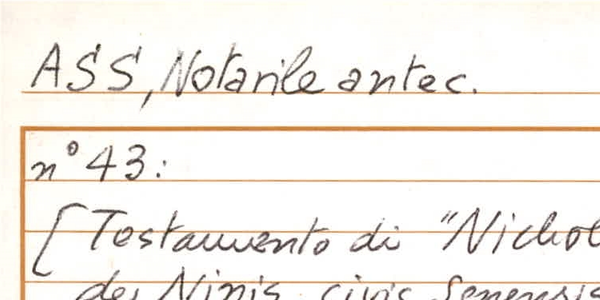 ASS, Notarile antec.
n° 43:
[Testamento di "Nichol
de Ninis civis Senensis